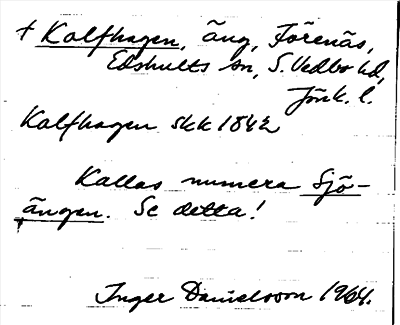 † Kalfhagen, äng, Förenäs,
Edshults sn, S. Vedbo hd,
Jönk. l.
Kalfhagen skk 1842
Kallas numera Sjö-
ängen. Se detta!
Inger Danielsson 1964.